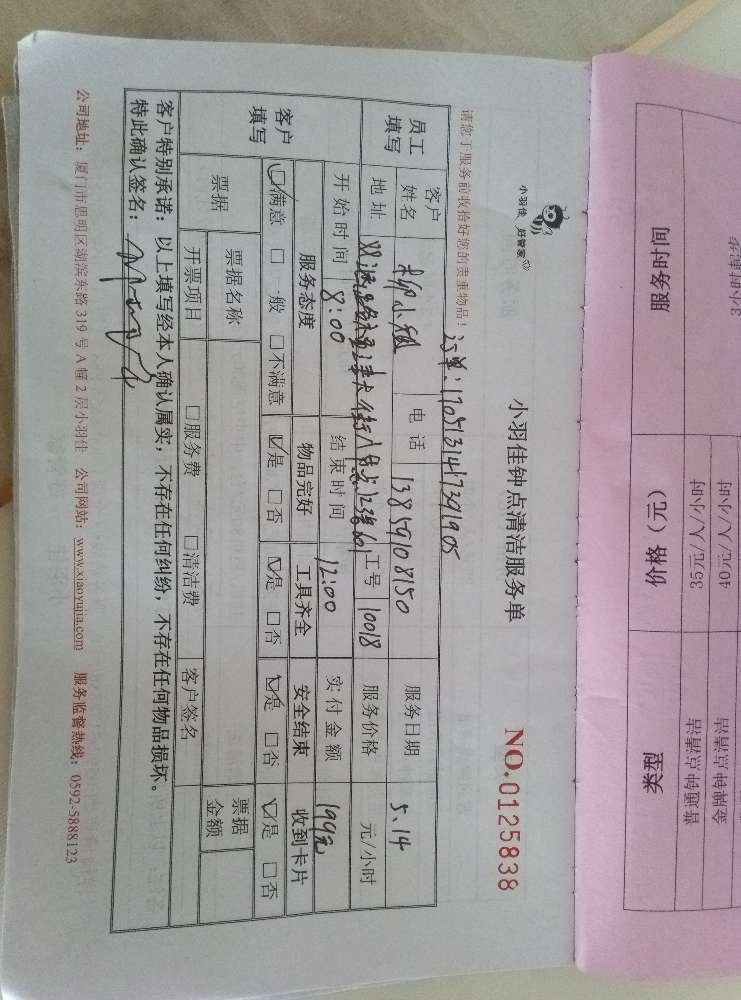 小羽佳 好管家
小羽佳钟点清洁服务单
NO.0125838
请您于服务前收拾好您的贵重物品!
订单:1705131417391905
员工填写
客户姓名 小 电话 13859108150 服务日期 5.14
地址 工号 10018 服务价格 元/小时
开始时间 8:00 结束时间 12:00 实付金额 199元
客户填写
服务态度 物品完好 工具齐全 安全结束 收到卡片
☑满意 □一般 □不满意 ☑是 □否 ☑是 □否 ☑是 □否 ☑是 □否
票据 票据名称 票据金额
开票项目 □服务费 □清洁费 客户签名
客户特别承诺:以上填写经本人确认属实,不存在任何纠纷,不存在任何物品损坏。
特此确认签名:
公司地址:厦门市思明区湖滨东路 319 号 A 幢 2 层小羽佳 公司网站:www.xiaoyujia.com 服务监督热线:0592-5888123
服务时间 价格(元) 类型
3小时起
35元/人/小时 普通钟点清洁
40元/人/小时 金牌钟点清洁